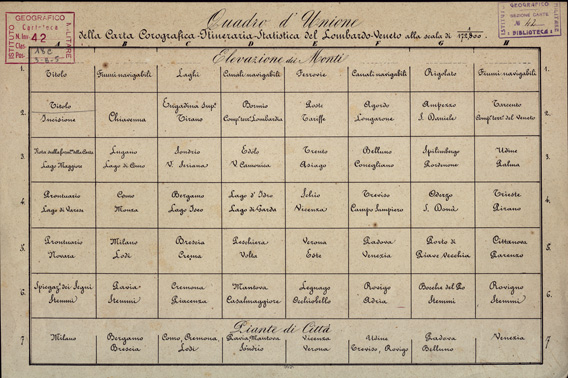 ISTITUTO
GEOGRAFICO
MILITARE
Carioteca
N. Ins 42
Clas.
Pos.
GEOGRAFICO
SEZIONE CARTE
BIBLIOTECA
Quadro d'Unione
della Carta Corografica-Itineraria-Statistica del Lombardo-Veneto alla scala di
A B C D E F G H
Elevazione dei Monti
1. Titolo Fiumi navigabili Laghi Canali navigabili Ferrovie Canali navigabili Rigolato Fiumi navigabili 1.
2. Titolo Bormio Poste Agordo Ampezzo Tarcento 2.
Incisione Chiavenna Tirano Comp. terr. Lombardia Tariffe Longarone S. Daniele Comp. terr. del Veneto
3. Lugano Sondrio Edolo Trento Belluno Spilimbergo Udine 3.
Lago Maggiore Lago di Como V. Seriana V. Camonica Asiago Conegliano Pordenone Palma
4. Prontuario Como Bergamo Lago d'Idro Schio Treviso Oderzo Trieste 4.
Lago di Varese Monza Lago Iseo Lago di Garda Vicenza Campo Sampiero S. Donà Pirano
5. Prontuario Milano Brescia Peschiera Verona Padova Porto di Cittanova 5.
Novara Lodi Crema Volta Este Venezia Piave Vecchia Parenzo
6. Spiegaz. dei Segni Pavia Cremona Mantova Legnago Rovigo Bocche del Po Rovigno 6.
Stemmi Stemmi Piacenza Casalmaggiore Occhiobello Adria Stemmi Stemmi
Piante di Città
7 Milano Bergamo Como, Cremona Pavia, Mantova Vicenza Udine Padova Venezia 7
Brescia Lodi Sondrio Verona Treviso, Rovigo Belluno